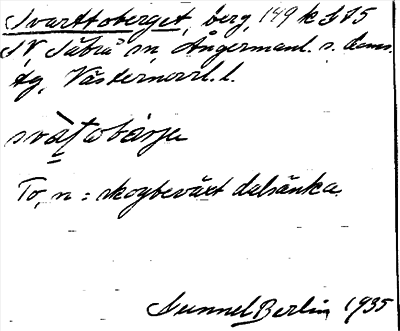 Svarttoberget, berg, 149 k S 75
SV, Säbrå sn, Ångermanl. s. doms.
tg, Västernorrl. l.
svàt̀obárjə
To, n = skogbeväxt dalsänka.
Sunnel Berlin 1935